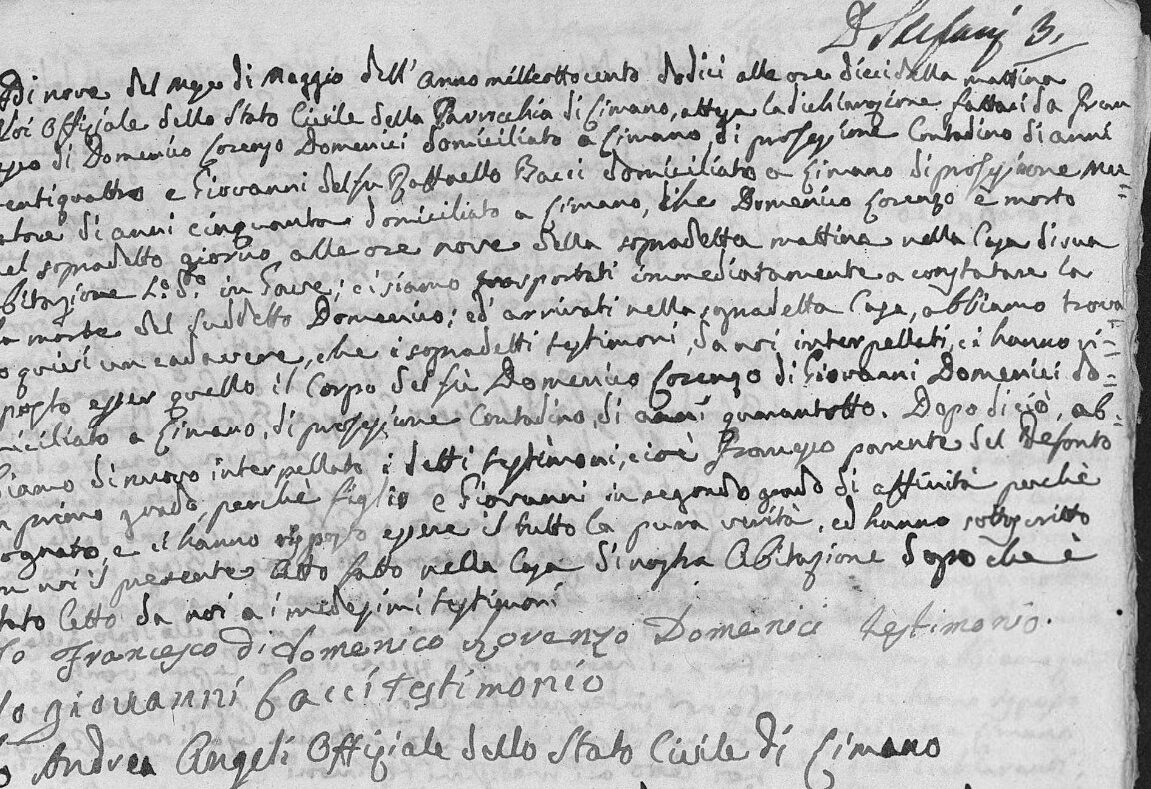 D Stefani 3.
di nove del mese di Maggio dell' Anno milleottocento dodici alle ore dieci della mattina
Noi Offiziale dello Stato Civile della Parrocchia di Cimano, attesa la dichiarazione fattaci da Fran
sco di Domenico Lorenzo Domenici domiciliato a Cimano, di professione Contadino di anni
entiquattro e Giovanni del fu Raffaello Bacci domiciliato a Cimano di professione Mer=
atore di anni cinquanta domiciliato a Cimano, che Domenico Lorenzo è morto
el sopradetto giorno alle ore nove della sopradetta mattina nella Casa di sua
bitazione L.o S.to in; ci siamo trasportati immediatamente a constatare la
a morte del suddetto Domenico; ed arrivati nella sopradetta Casa, abbiamo trova=
o quivi un cadavere, che i sopradetti testimoni, da noi interpellati, ci hanno ri=
sposto esser quello il Corpo del fù Domenico Lorenzo di Giovanni Domenici do=
miciliato a Cimano, di professione Contadino, di anni quarantotto. Dopo di ciò, ab=
biamo di nuovo interpellati i detti testimoni, cioè Francesco parente del Defonto
n primo grado, perchè figlio e Giovanni in secondo grado di affinità perchè
ognato, e ci hanno risposto essere il tutto la pura verità, ed hanno sottoscritto
on noi il presente Atto fatto nella Casa di nostra Abitazione dopo che è
tato Letto da noi a i medesimi testimoni
Io Francesco di Domenico Lorenzo Domenici testimonio.
Io giovanni bacci testimonio
o Andrea Angeli Offiziale dello Stato Civile di Cimano